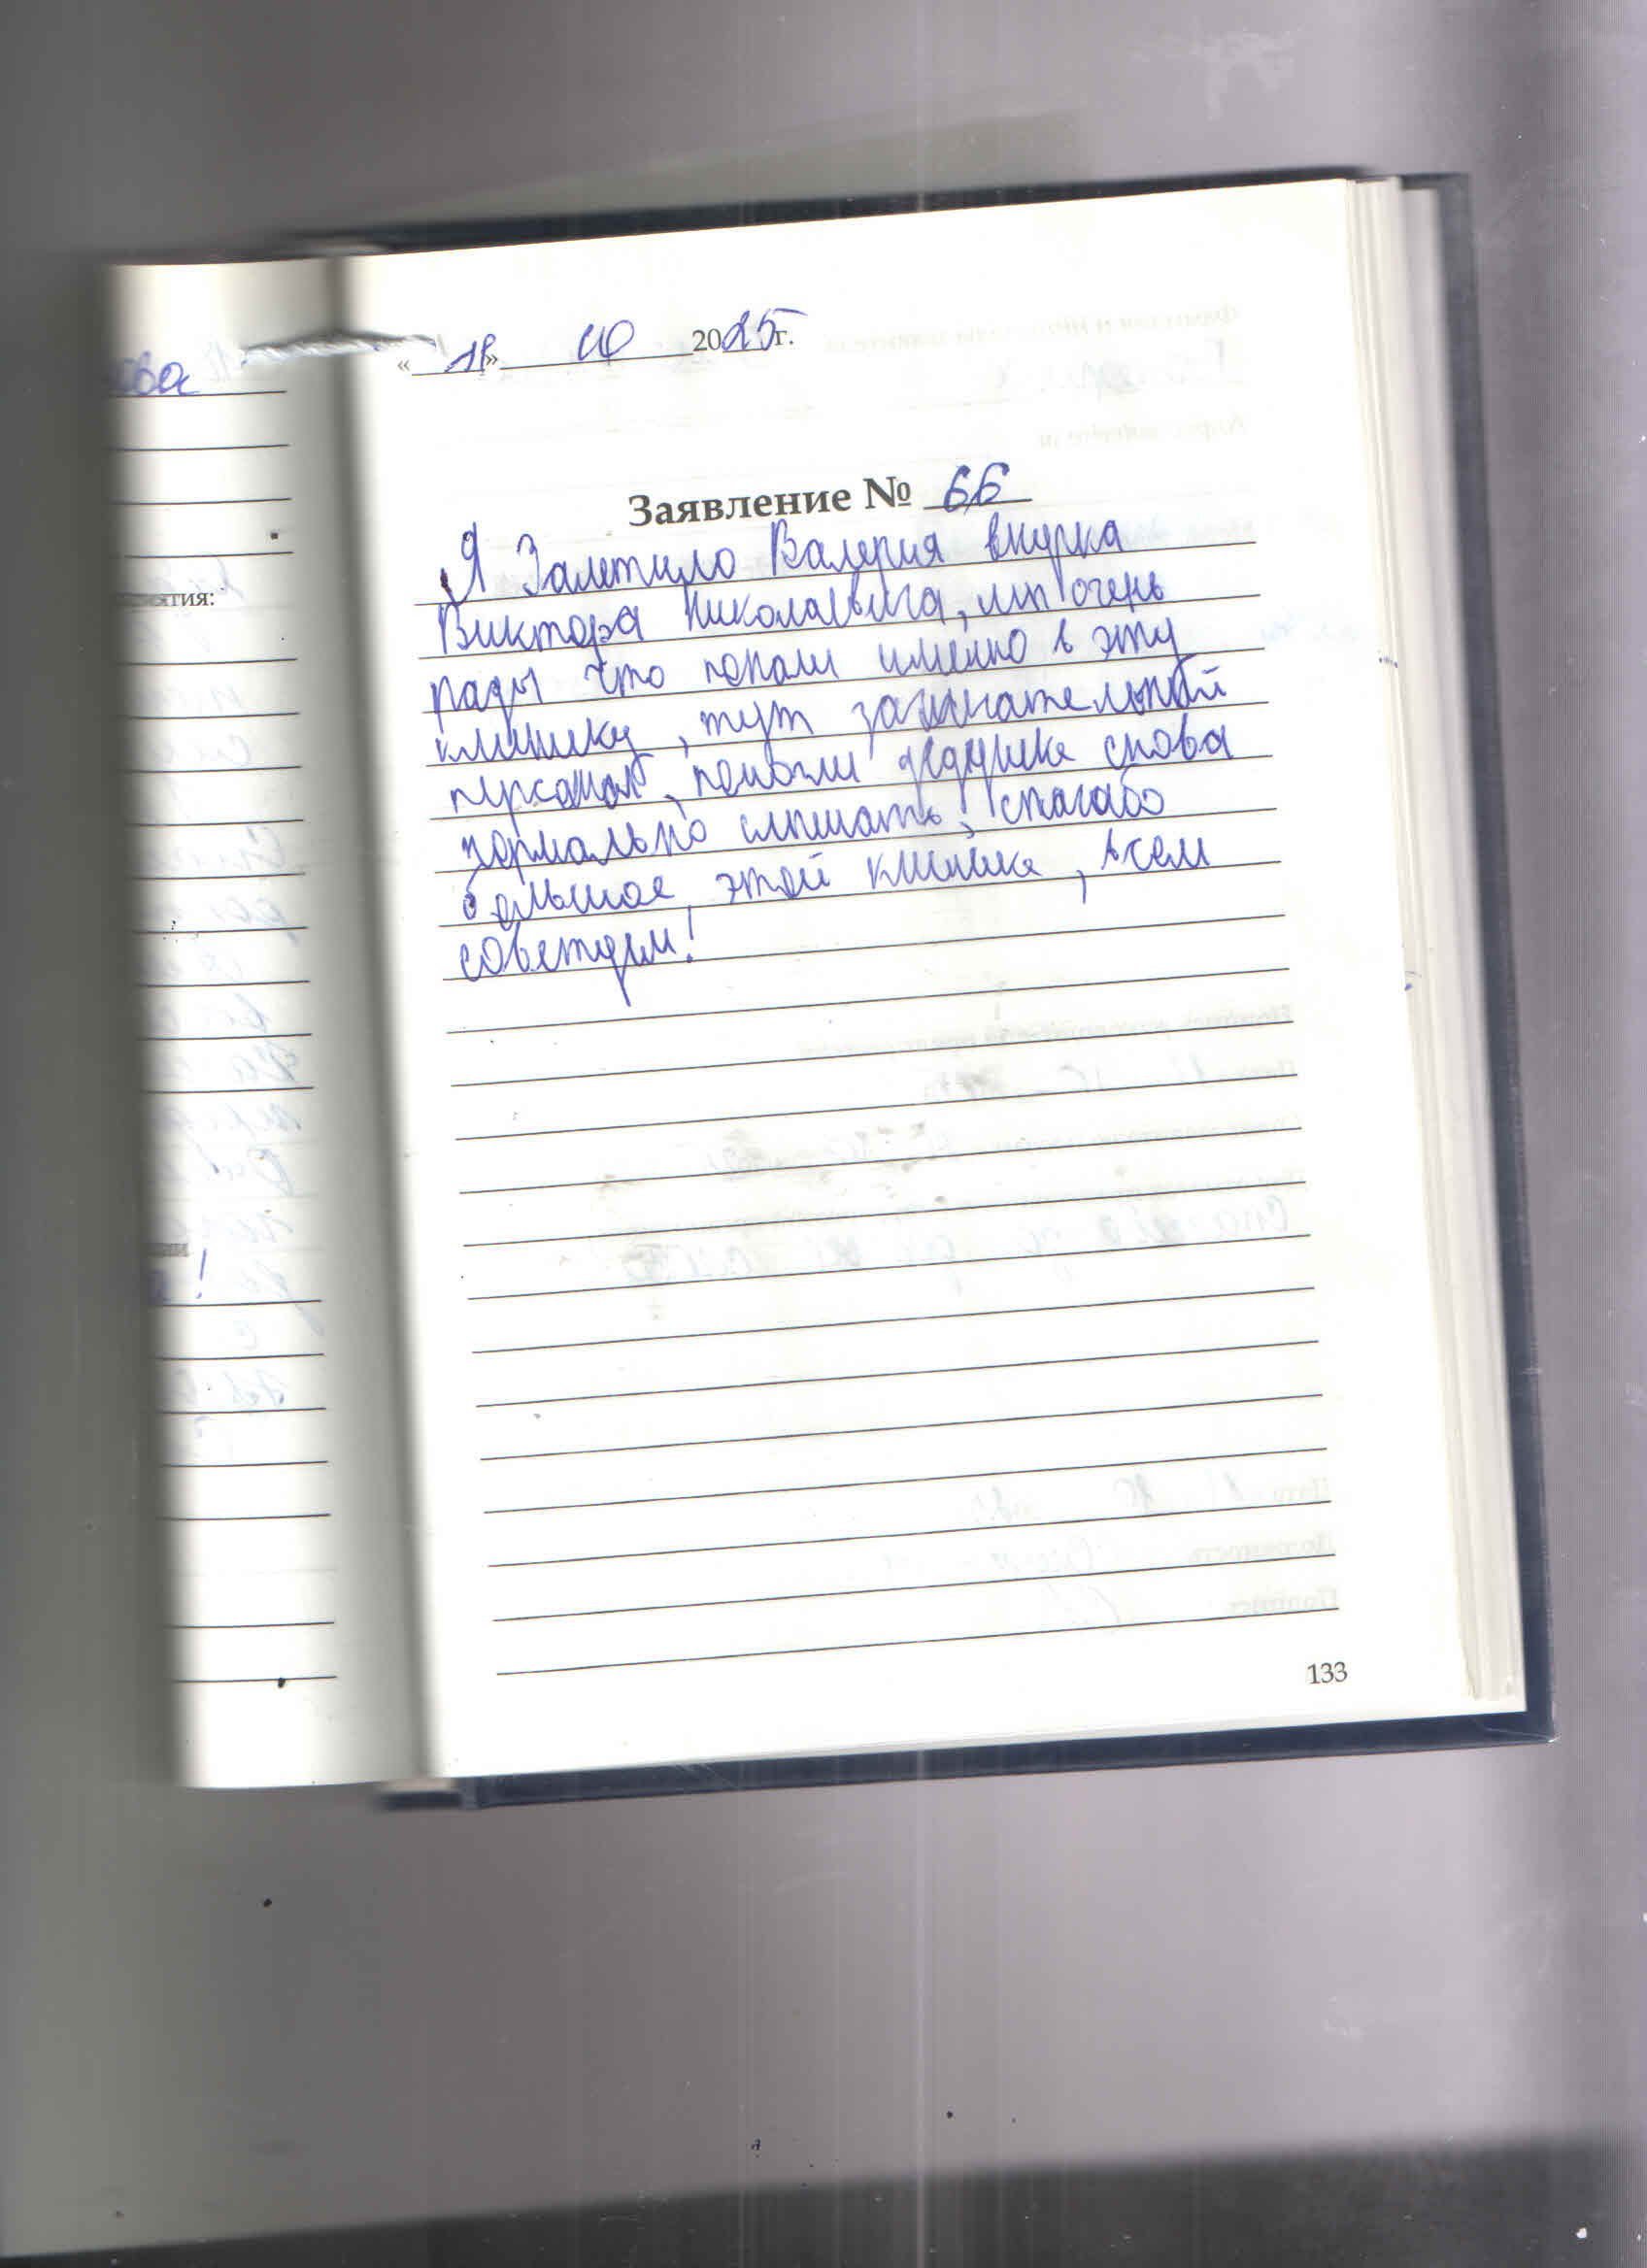 « 18 » 10 2025 г.
Заявление № 66
Я Залетило Валерия внучка
Виктора Николаевича, мы очень
рады что попали именно в эту
клинику, тут замечательный
персонал, помогли дедушке снова
нормально слышать, спасибо
большое этой клинике, всем
советуем!
133
ва
ятия:
!